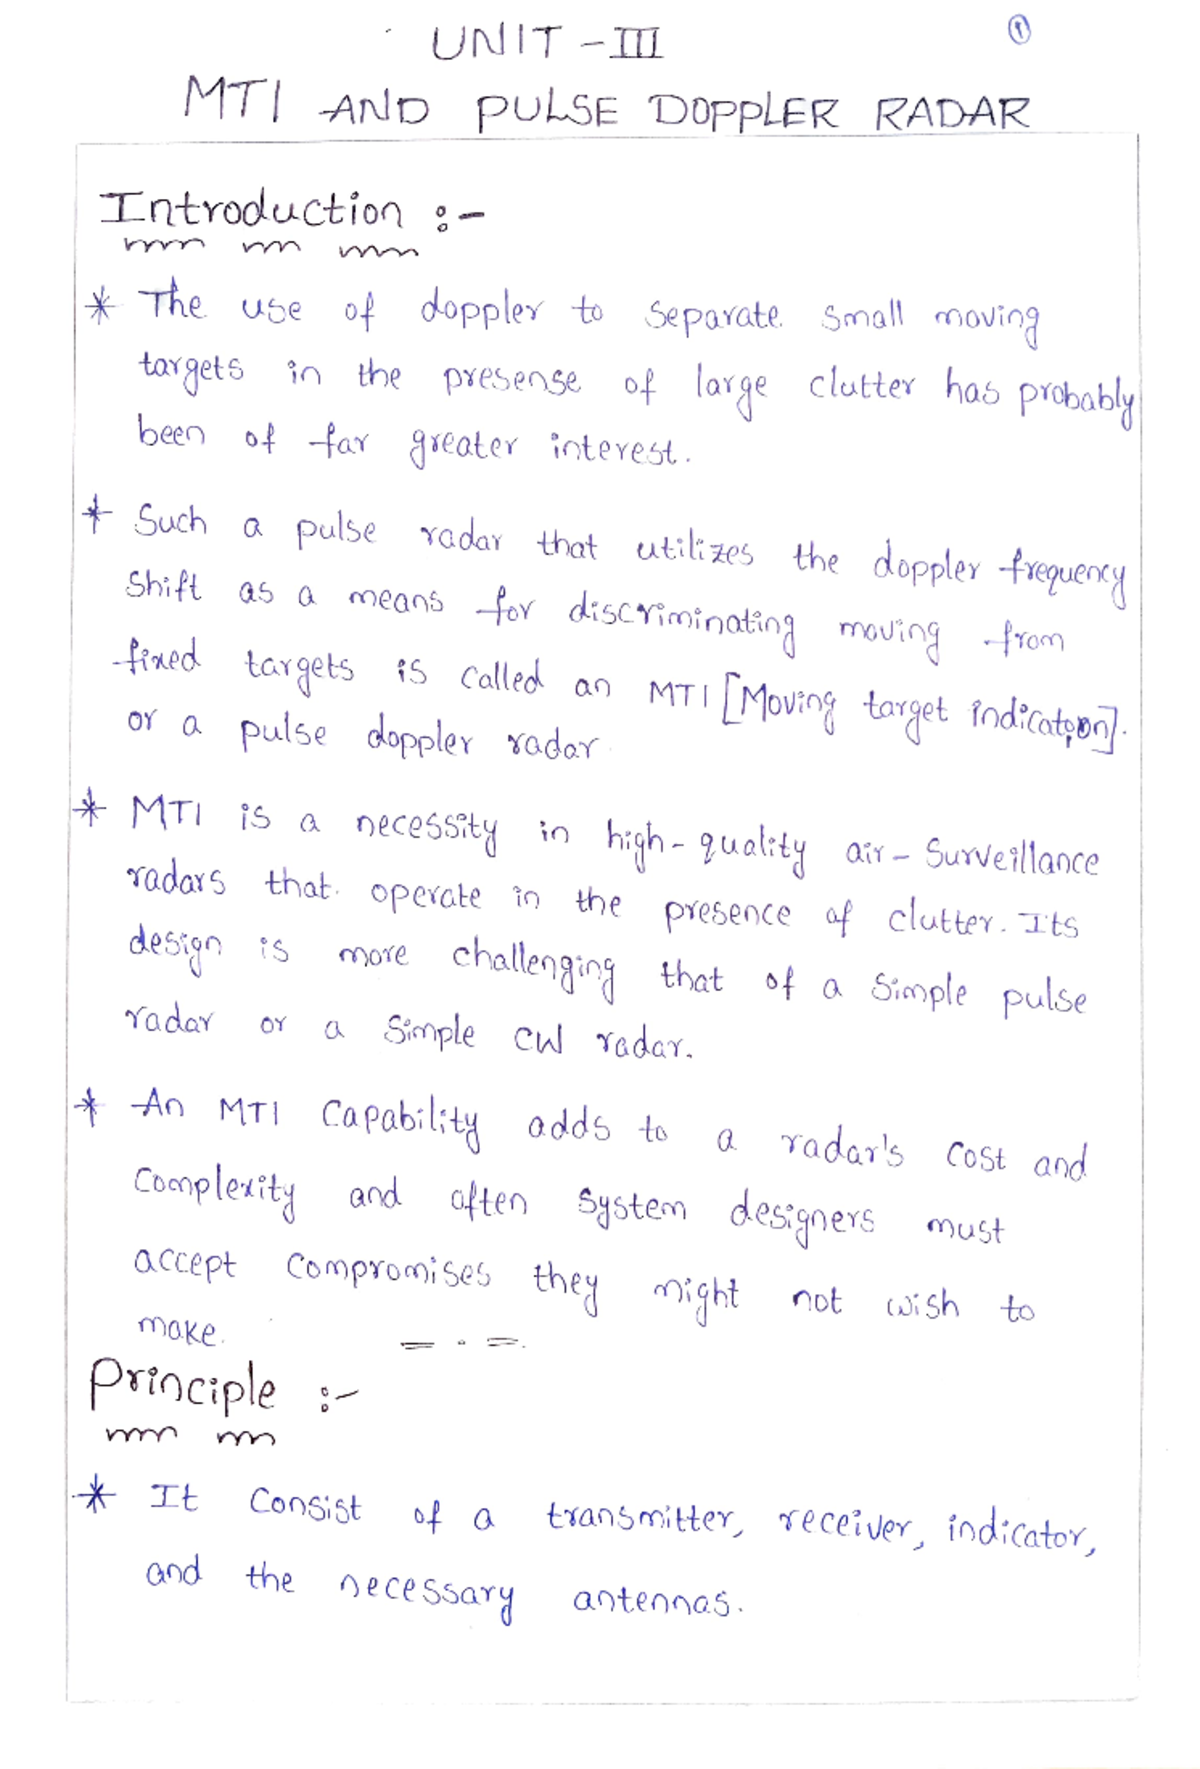 ①
UNIT - III
MTI AND PULSE DOPPLER RADAR
Introduction :-
* The use of doppler to separate small moving
targets in the presense of large clutter has probably
been of far greater interest.
* Such a pulse radar that utilizes the doppler frequency
Shift as a means for discriminating moving from
fixed targets is called an MTI [Moving target indication].
or a pulse doppler radar
* MTI is a necessity in high-quality air-Surveillance
radars that operate in the presence of clutter. Its
design is more challenging that of a Simple pulse
radar or a Simple CW radar.
* An MTI Capability adds to a radar's cost and
Complexity and often System designers must
accept compromises they might not wish to
make.
Principle :-
* It Consist of a transmitter, receiver, indicator,
and the necessary antennas.